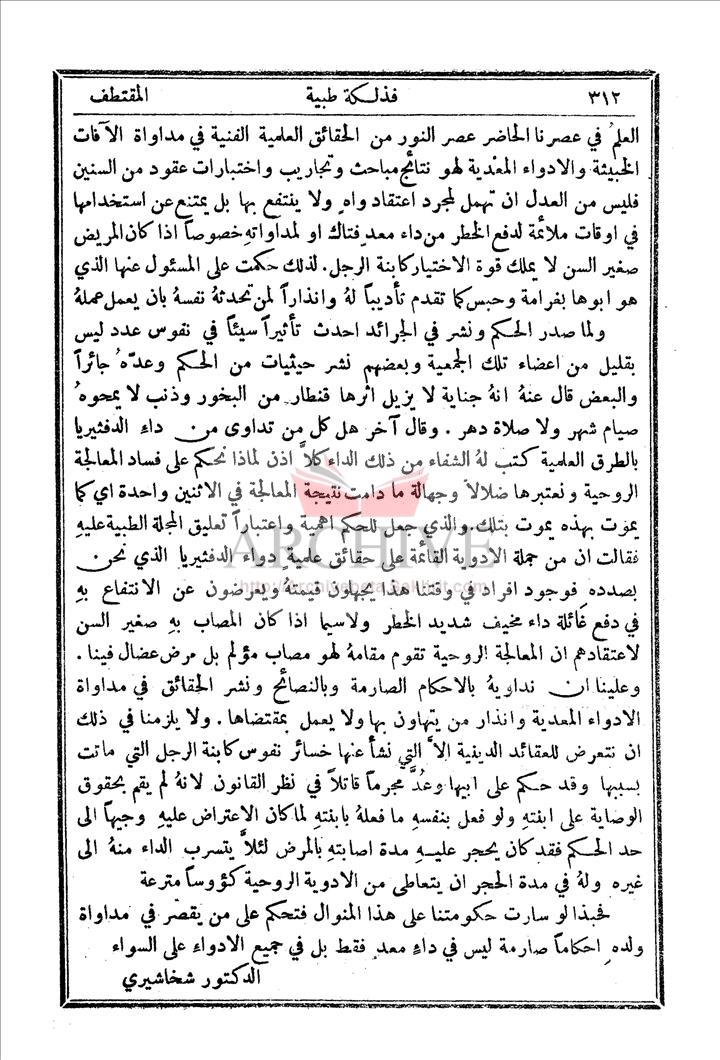 ٣١٢ فذلكة طبية المقتطف
العلمُ في عصرنا الحاضر عصر النور من الحقائق العلمية الفنية في مداواة الآفات
الخبيثة والادواء المعدية لهو نتائج مباحث وتجاريب واختبارات عقود من السنين
فليس من العدل ان تهمل لمجرد اعتقاد واهٍ ولا ينتفع بها بل يمتنع عن استخدامها
في اوقات ملائمة لدفع الخطر من داء معدٍ فتاك او لمداواتهِ خصوصاً اذا كان المريض
صغير السن لا يملك قوة الاختيار كابنة الرجل. لذلك حكمت على المسئول عنها الذي
هو ابوها بغرامة وحبس كما تقدم تأديباً لهُ وانذاراً لمن تحدثهُ نفسهُ بان يعمل عملهُ
ولما صدر الحكم ونشر في الجرائد احدث تأثيراً سيئاً في نفوس عدد ليس
بقليل من اعضاء تلك الجمعية وبعضهم نشر حيثيات من الحكم وعدّهُ جائراً
والبعض قال عنهُ انهُ جناية لا يزيل اثرها قنطار من البخور وذنب لا يمحوهُ
صيام شهر ولا صلاة دهر. وقال آخر هل كل من تداوى من داءِ الدفثيريا
بالطرق العلمية كتب لهُ الشفاء من ذلك الداء كلاَّ اذن لماذا نحكم على فساد المعالجة
الروحية ونعتبرها ضلالاً وجهالة ما دامت نتيجة المعالجة في الاثنين واحدة اي كما
يموت بهذه يموت بتلك. والذي جعل للحكم اهمية واعتباراً تعليق المجلة الطبية عليهِ
فقالت ان من جملة الادوية القائمة على حقائق علميةٍ دواء الدفثيريا الذي نحن
بصدده فوجود افراد في وقتنا هذا يجهلون قيمتهُ ويعرضون عن الانتفاع بهِ
في دفع غائلة داء مخيف شديد الخطر ولاسيما اذا كان المصاب بهِ صغير السن
لاعتقادهم ان المعالجة الروحية تقوم مقامهُ لهو مصاب مؤلم بل مرض عضال فينا.
وعلينا ان نداويهُ بالاحكام الصارمة وبالنصائح ونشر الحقائق في مداواة
الادواء المعدية وانذار من يتهاون بها ولا يعمل بمقتضاها. ولا يلزمنا في ذلك
ان نتعرض للعقائد الدينية الاَّ التي نشأ عنها خسائر نفوس كابنة الرجل التي ماتت
بسببها وقد حكم على ابيها وعُدَّ مجرماً قاتلاً في نظر القانون لانهُ لم يقم بحقوق
الوصاية على ابنتهِ ولو فعل بنفسهِ ما فعلهُ بابنتهِ لما كان الاعتراض عليهِ وجيهاً الى
حد الحكم فقد كان يحجر عليهِ مدة اصابتهِ بالمرض لئلاَّ يتسرب الداء منهُ الى
غيره ولهُ في مدة الحجر ان يتعاطى من الادوية الروحية كؤوساً مترعة
فحبذا لو سارت حكومتنا على هذا المنوال فتحكم على من يقصّر في مداواة
ولده احكاماً صارمة ليس في داءٍ معدٍ فقط بل في جميع الادواء على السواء
الدكتور شخاشيري
ARCHIVE